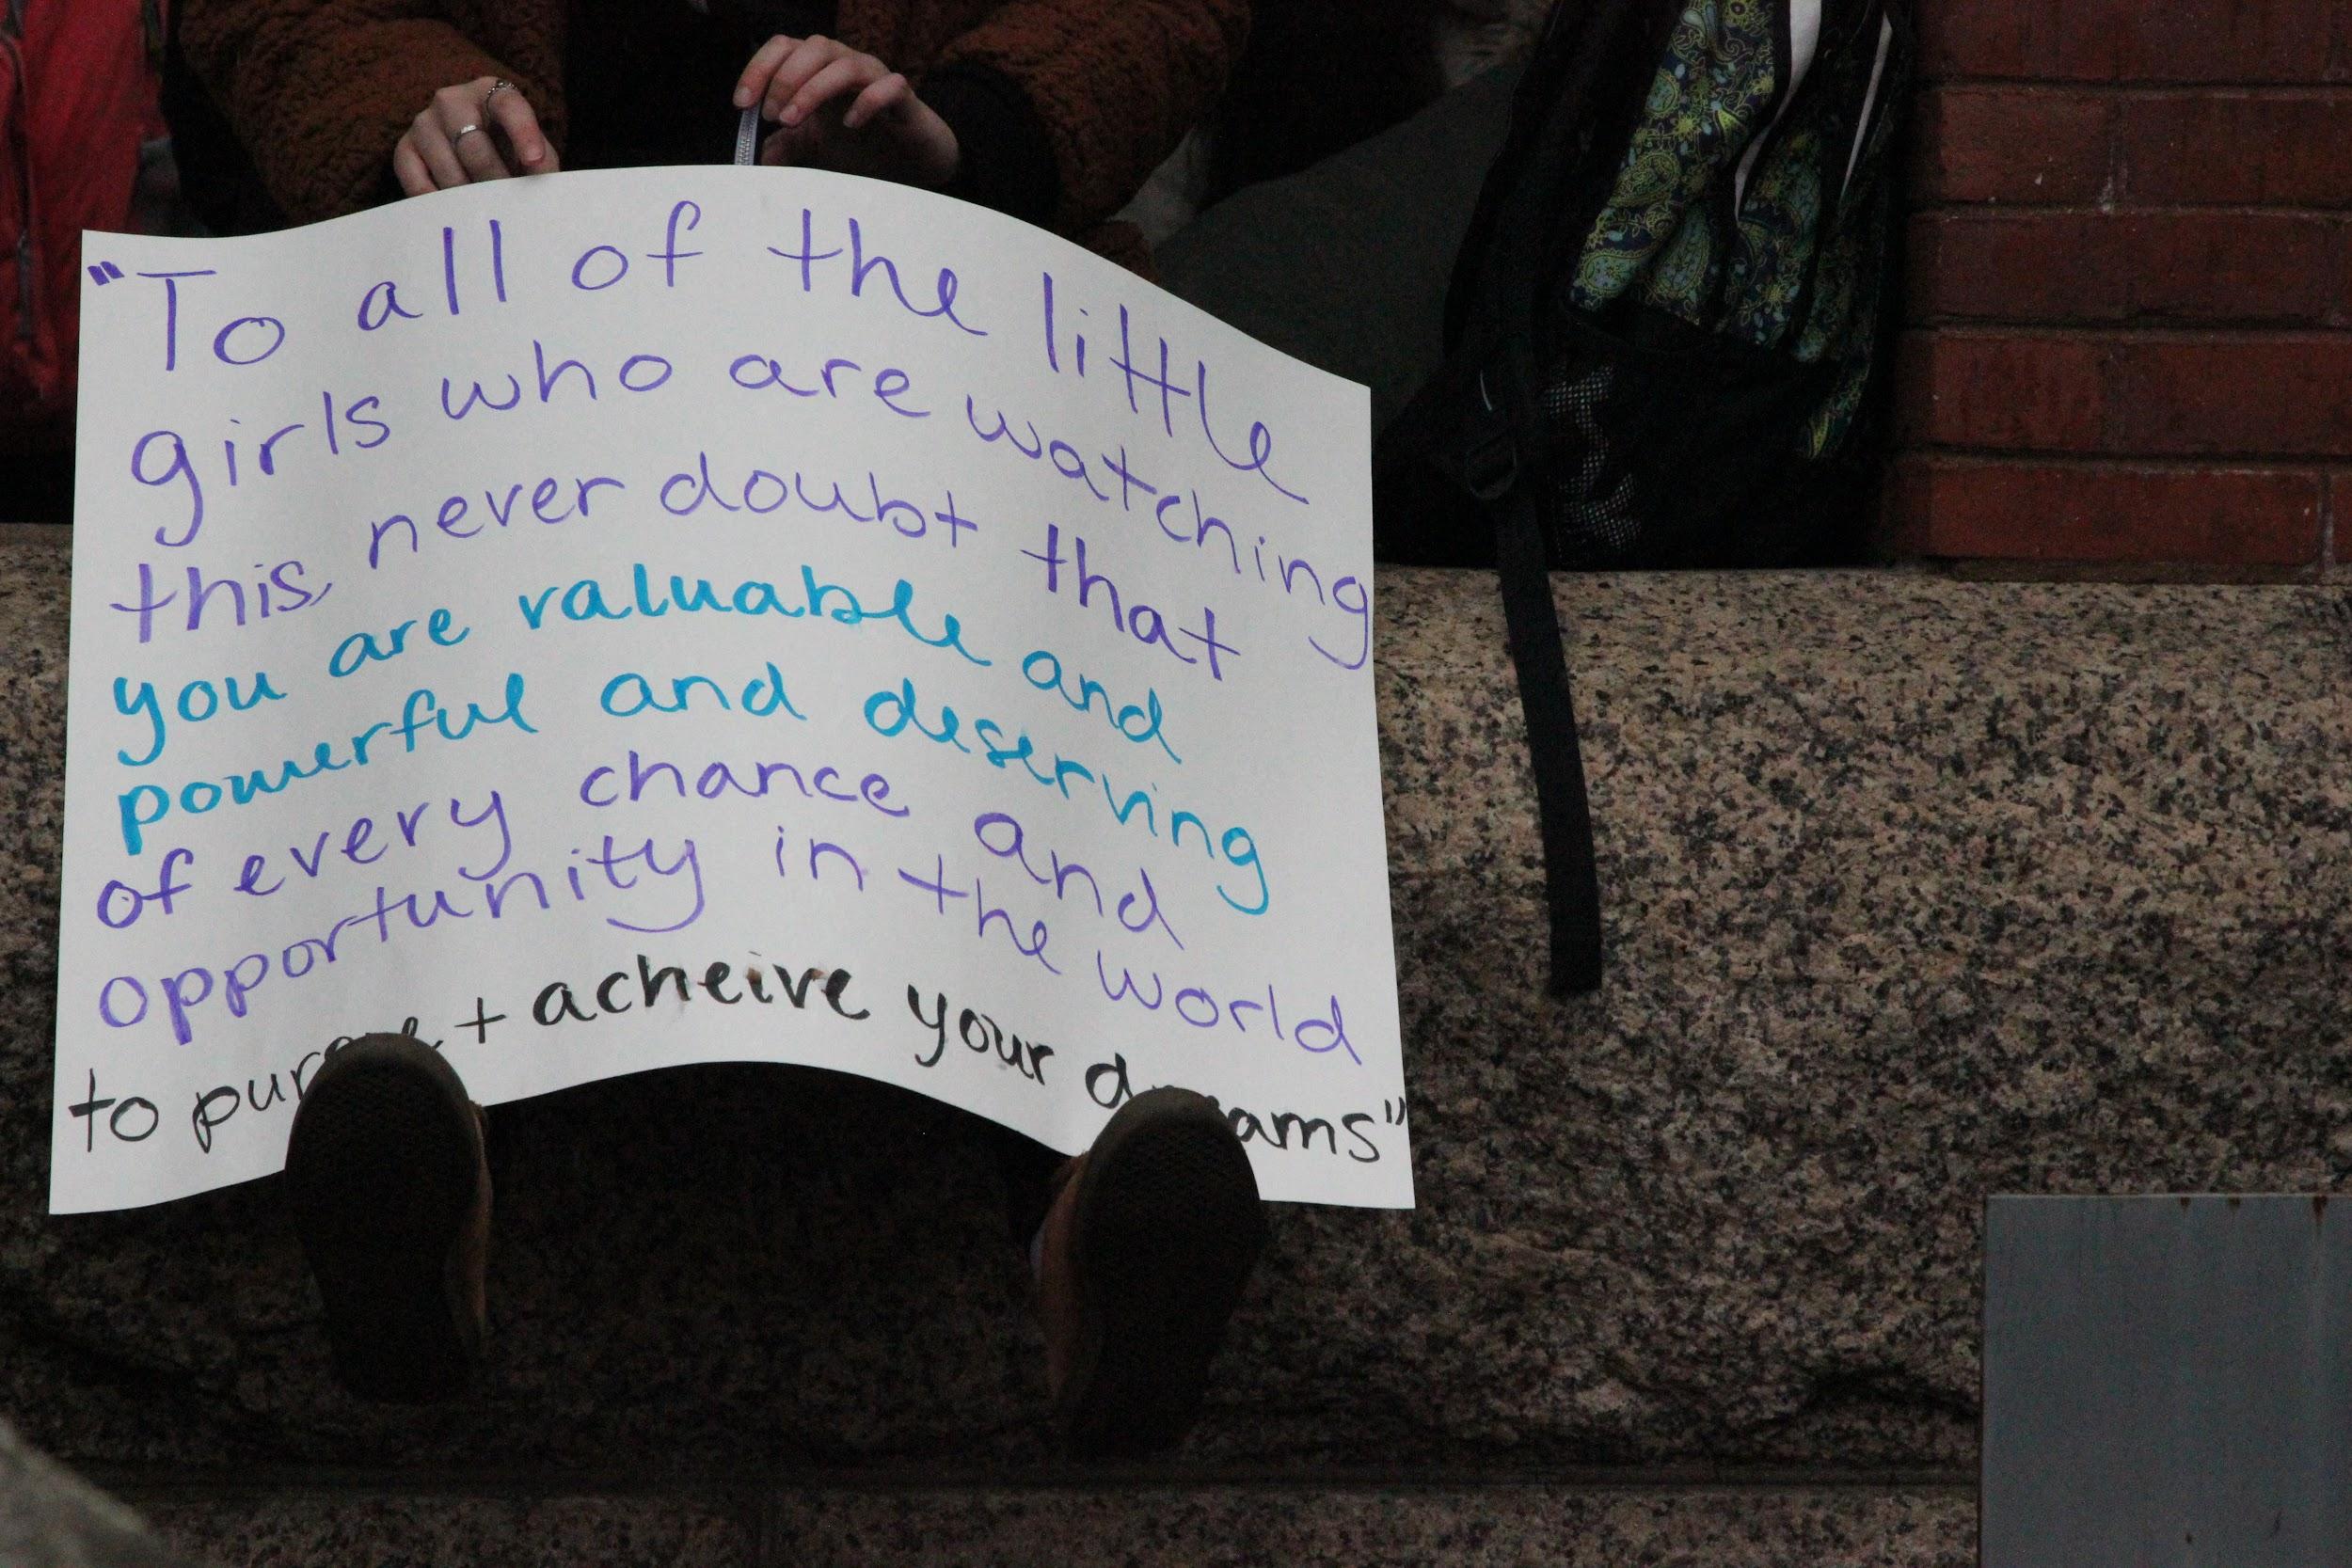 "To all of the little
girls who are watching
this, never doubt that
you are valuable and
powerful and deserving
of every chance and
opportunity in the world
to + acheive your